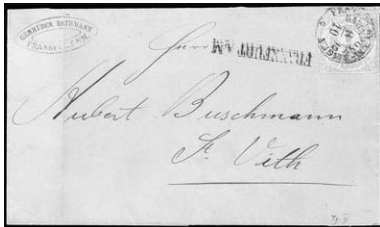 GEBRUEDER BETHMANN
FRANKFURT A/M.
FRANKFURT A.M
Herrn
Hubert Buschmann
St. Vith